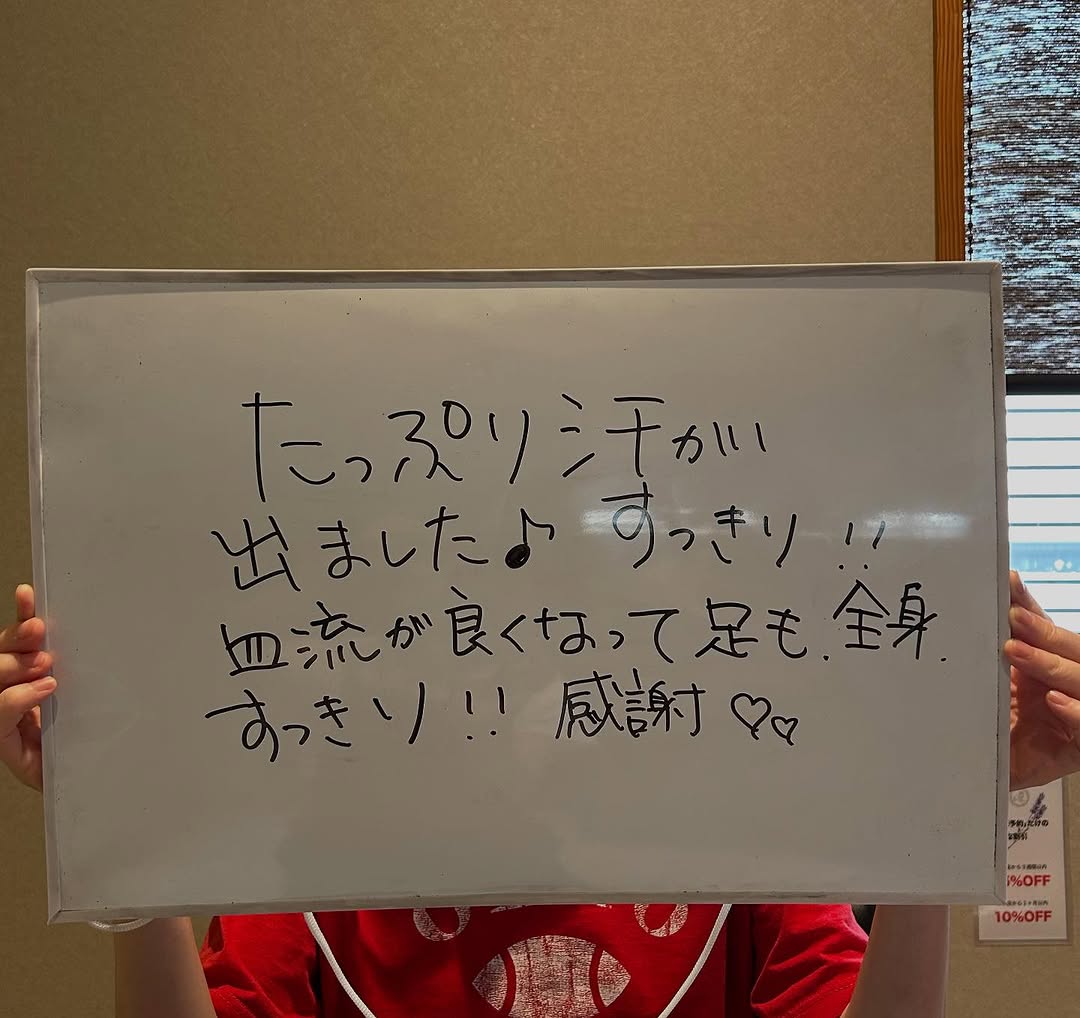 たっぷり汗が
出ました♪ すっきり!!
血流が良くなって足も.全身.
すっきり!! 感謝♡♡
%OFF
10%OFF